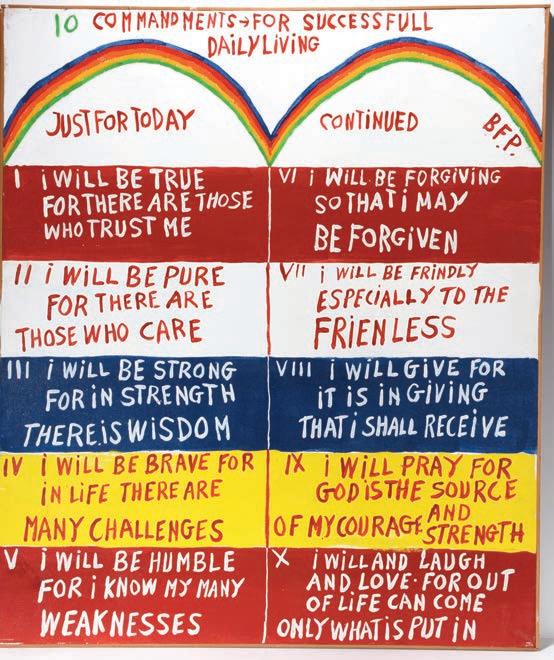 10 COMMANDMENTS→FOR SUCCESSFULL
DAILY LIVING
JUST FOR TODAY
CONTINUED
B.F.P.
I i WILL BE TRUE
FOR THERE ARE THOSE
WHO TRUST ME
II i WILL BE PURE
FOR THERE ARE
THOSE WHO CARE
III i WILL BE STRONG
FOR iN STRENGTH
THERE iS WISDOM
IV i WILL BE BRAVE FOR
iN LiFE THERE ARE
MANY CHALLENGES
V i WILL BE HUMBLE
FOR i KNOW MY MANY
WEAKNESSES
VI i WILL BE FORGIVING
SO THAT i MAY
BE FORGIVEN
VII i WILL BE FRINDLY
ESPECIALLY TO THE
FRIENLESS
VIII i WILL GIVE FOR
iT iS iN GIVING
THAT i SHALL RECEIVE
IX i WILL PRAY FOR
GOD iS THE SOURCE
OF MY COURAGE AND STRENGTH
X i WILL AND LAUGH
AND LOVE·FOR OUT
OF LIFE CAN COME
ONLY WHAT iS PUT iN